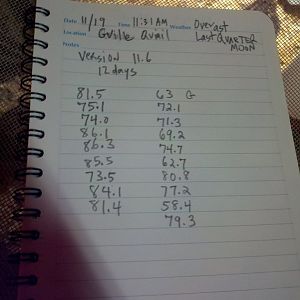 Date 11/19 Time 11:31 AM Weather Overcast
Location Gville Quail Last QUARTER
MOON
Notes
Version 11.6
12 days
81.5 63 G
75.1 72.1
74.0 71.3
86.1 69.2
86.3 74.7
85.5 62.7
73.5 80.8
84.1 77.2
81.4 58.4
79.3